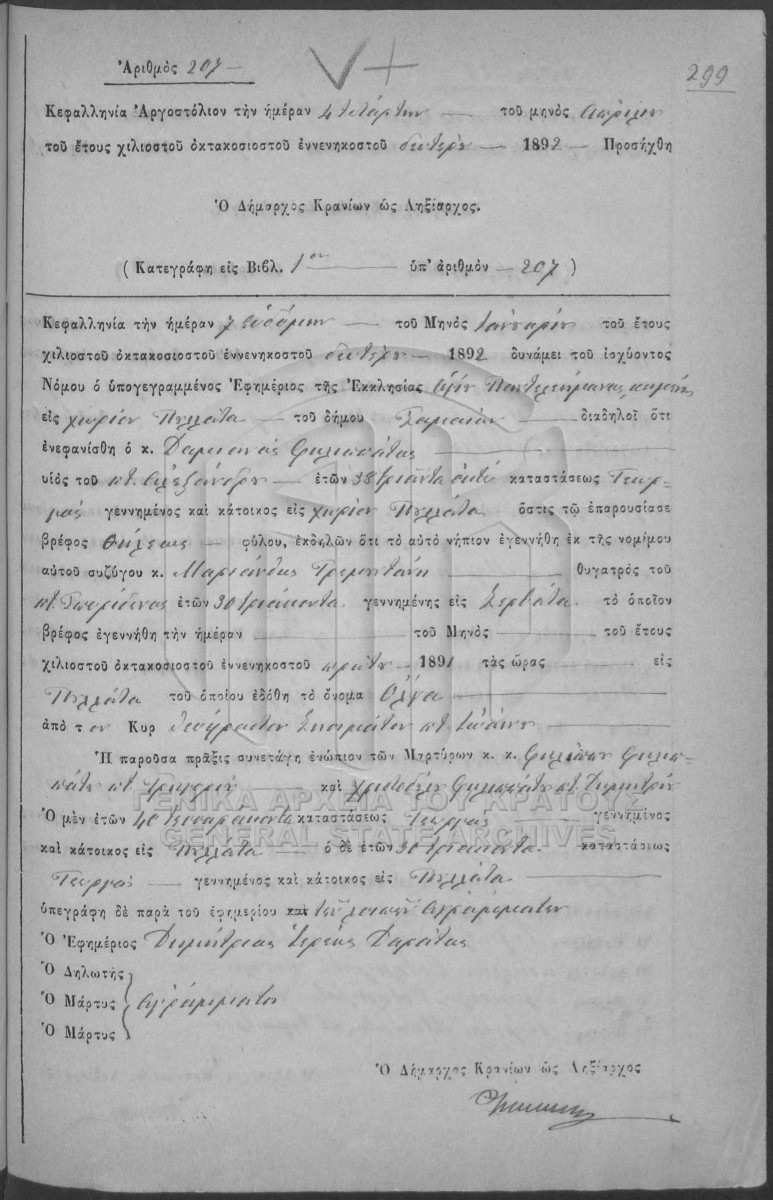 Ἀριθμὸς 207 —
V +
299
Κεφαλληνία Ἀργοστόλιον τὴν ἡμέραν 4 τετάρτην — τοῦ μηνὸς Ἀπριλίου
τοῦ ἔτους χιλιοστοῦ ὀκτακοσιοστοῦ ἐννενηκοστοῦ δευτέρου — 1892 — Προσήχθη
Ὁ Δήμαρχος Κρανίων ὡς Ληξίαρχος.
( Κατεγράφη εἰς Βιβλ. 1ον — ὑπ' ἀριθμὸν — 207 )
Κεφαλληνία τὴν ἡμέραν 7 ἑβδόμην — τοῦ Μηνὸς Ἰανουαρίου τοῦ ἔτους
χιλιοστοῦ ὀκτακοσιοστοῦ ἐννενηκοστοῦ δευτέρου — 1892 δυνάμει τοῦ ἰσχύοντος
Νόμου ὁ ὑπογεγραμμένος Ἐφημέριος τῆς Ἐκκλησίας Ἁγίου Παντελεήμωνος κειμένης
εἰς χωρίον Πυλλάτα — τοῦ δήμου Σαμαίων — διαδηλοῖ ὅτι
ἐνεφανίσθη ὁ κ. Δαμιανὸς Φιλιππάτος —
υἱὸς τοῦ ποτ. Ἀλεξάνδρου — ἐτῶν 38 τριάντα ὀκτὼ καταστάσεως Γεωρ-
γὸς γεννημένος καὶ κάτοικος εἰς χωρίον Πυλλάτα ὅστις τῷ ἐπαρουσίασε
βρέφος θήλεως — φύλου, ἐκδηλῶν ὅτι τὸ αὐτὸ νήπιον ἐγεννήθη ἐκ τῆς νομίμου
αὐτοῦ συζύγου κ. Μαριάνθης — θυγατρὸς τοῦ
ποτ. Σπυρίδωνος ἐτῶν 30 τριάκοντα γεννημένης εἰς Ζερβάτα τὸ ὁποῖον
βρέφος ἐγεννήθη τὴν ἡμέραν — τοῦ Μηνὸς — τοῦ ἔτους
χιλιοστοῦ ὀκτακοσιοστοῦ ἐννενηκοστοῦ πρώτου — 1891 τὰς ὥρας — εἰς
Πυλλάτα τοῦ ὁποίου ἐδόθη τὸ ὄνομα Ὄλγα —
ἀπὸ τ ον Κυρ Θεόφραστον ποτ. Ἰωάννου —
Ἡ παροῦσα πρᾶξις συνετάγη ἐνώπιον τῶν Μαρτύρων κ. κ. Φιλίππου Φιλιπ-
πάτου ποτ. Γρηγορίου — καὶ Χριστοδούλου Φιλιππάτου ποτ. Δημητρίου
Ὁ μὲν ἐτῶν 40 τεσσαράκοντα καταστάσεως Γεωργὸς — γεννημένος
καὶ κάτοικος εἰς Πυλλάτα — ὁ δὲ ἐτῶν 30 τριάκοντα καταστάσεως
Γεωργὸς — γεννημένος καὶ κάτοικος εἰς Πυλλάτα —
ὑπεγράφη δὲ παρὰ τοῦ ἐφημερίου καὶ τῶν λοιπῶν ἀγραμμάτων
Ὁ Ἐφημέριος Δημήτριος Ἱερεὺς Δαράτος
Ὁ Δηλωτὴς
Ὁ Μάρτυς ἀγράμματοι
Ὁ Μάρτυς
Ὁ Δήμαρχος Κρανίων ὡς Ληξίαρχος
ΓΕΝΙΚΑ ΑΡΧΕΙΑ ΤΟΥ ΚΡΑΤΟΥΣ
GENERAL STATE ARCHIVES